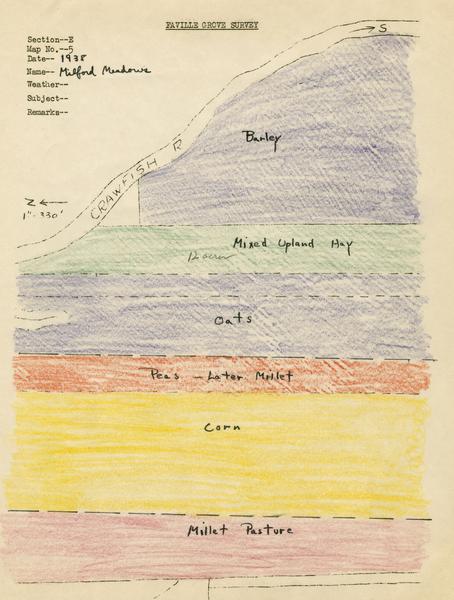 FAVILLE GROVE SURVEY
Section--E
Map No.--5
Date-- 1938
Name-- Milford Meadows
Weather--
Subject--
Remarks--
S
Barley
CRAWFISH R
N
1"-330'
Mixed Upland Hay
12 acres
Oats
Peas - Later Millet
Corn
Millet Pasture